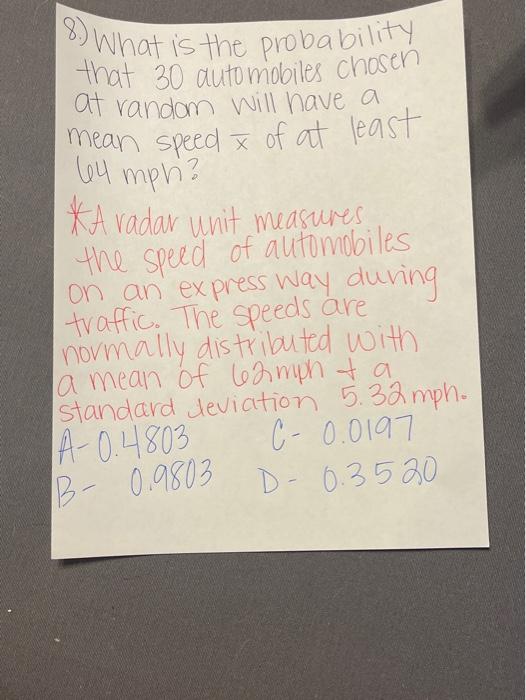 8.) What is the probability
that 30 automobiles chosen
at random will have a
mean speed x̅ of at least
64 mph?
*A radar unit measures
the speed of automobiles
on an express way during
traffic. The speeds are
normally distributed with
a mean of 62mph + a
standard deviation 5.32 mph.
A- 0.4803 C- 0.0197
B- 0.9803 D- 0.3520